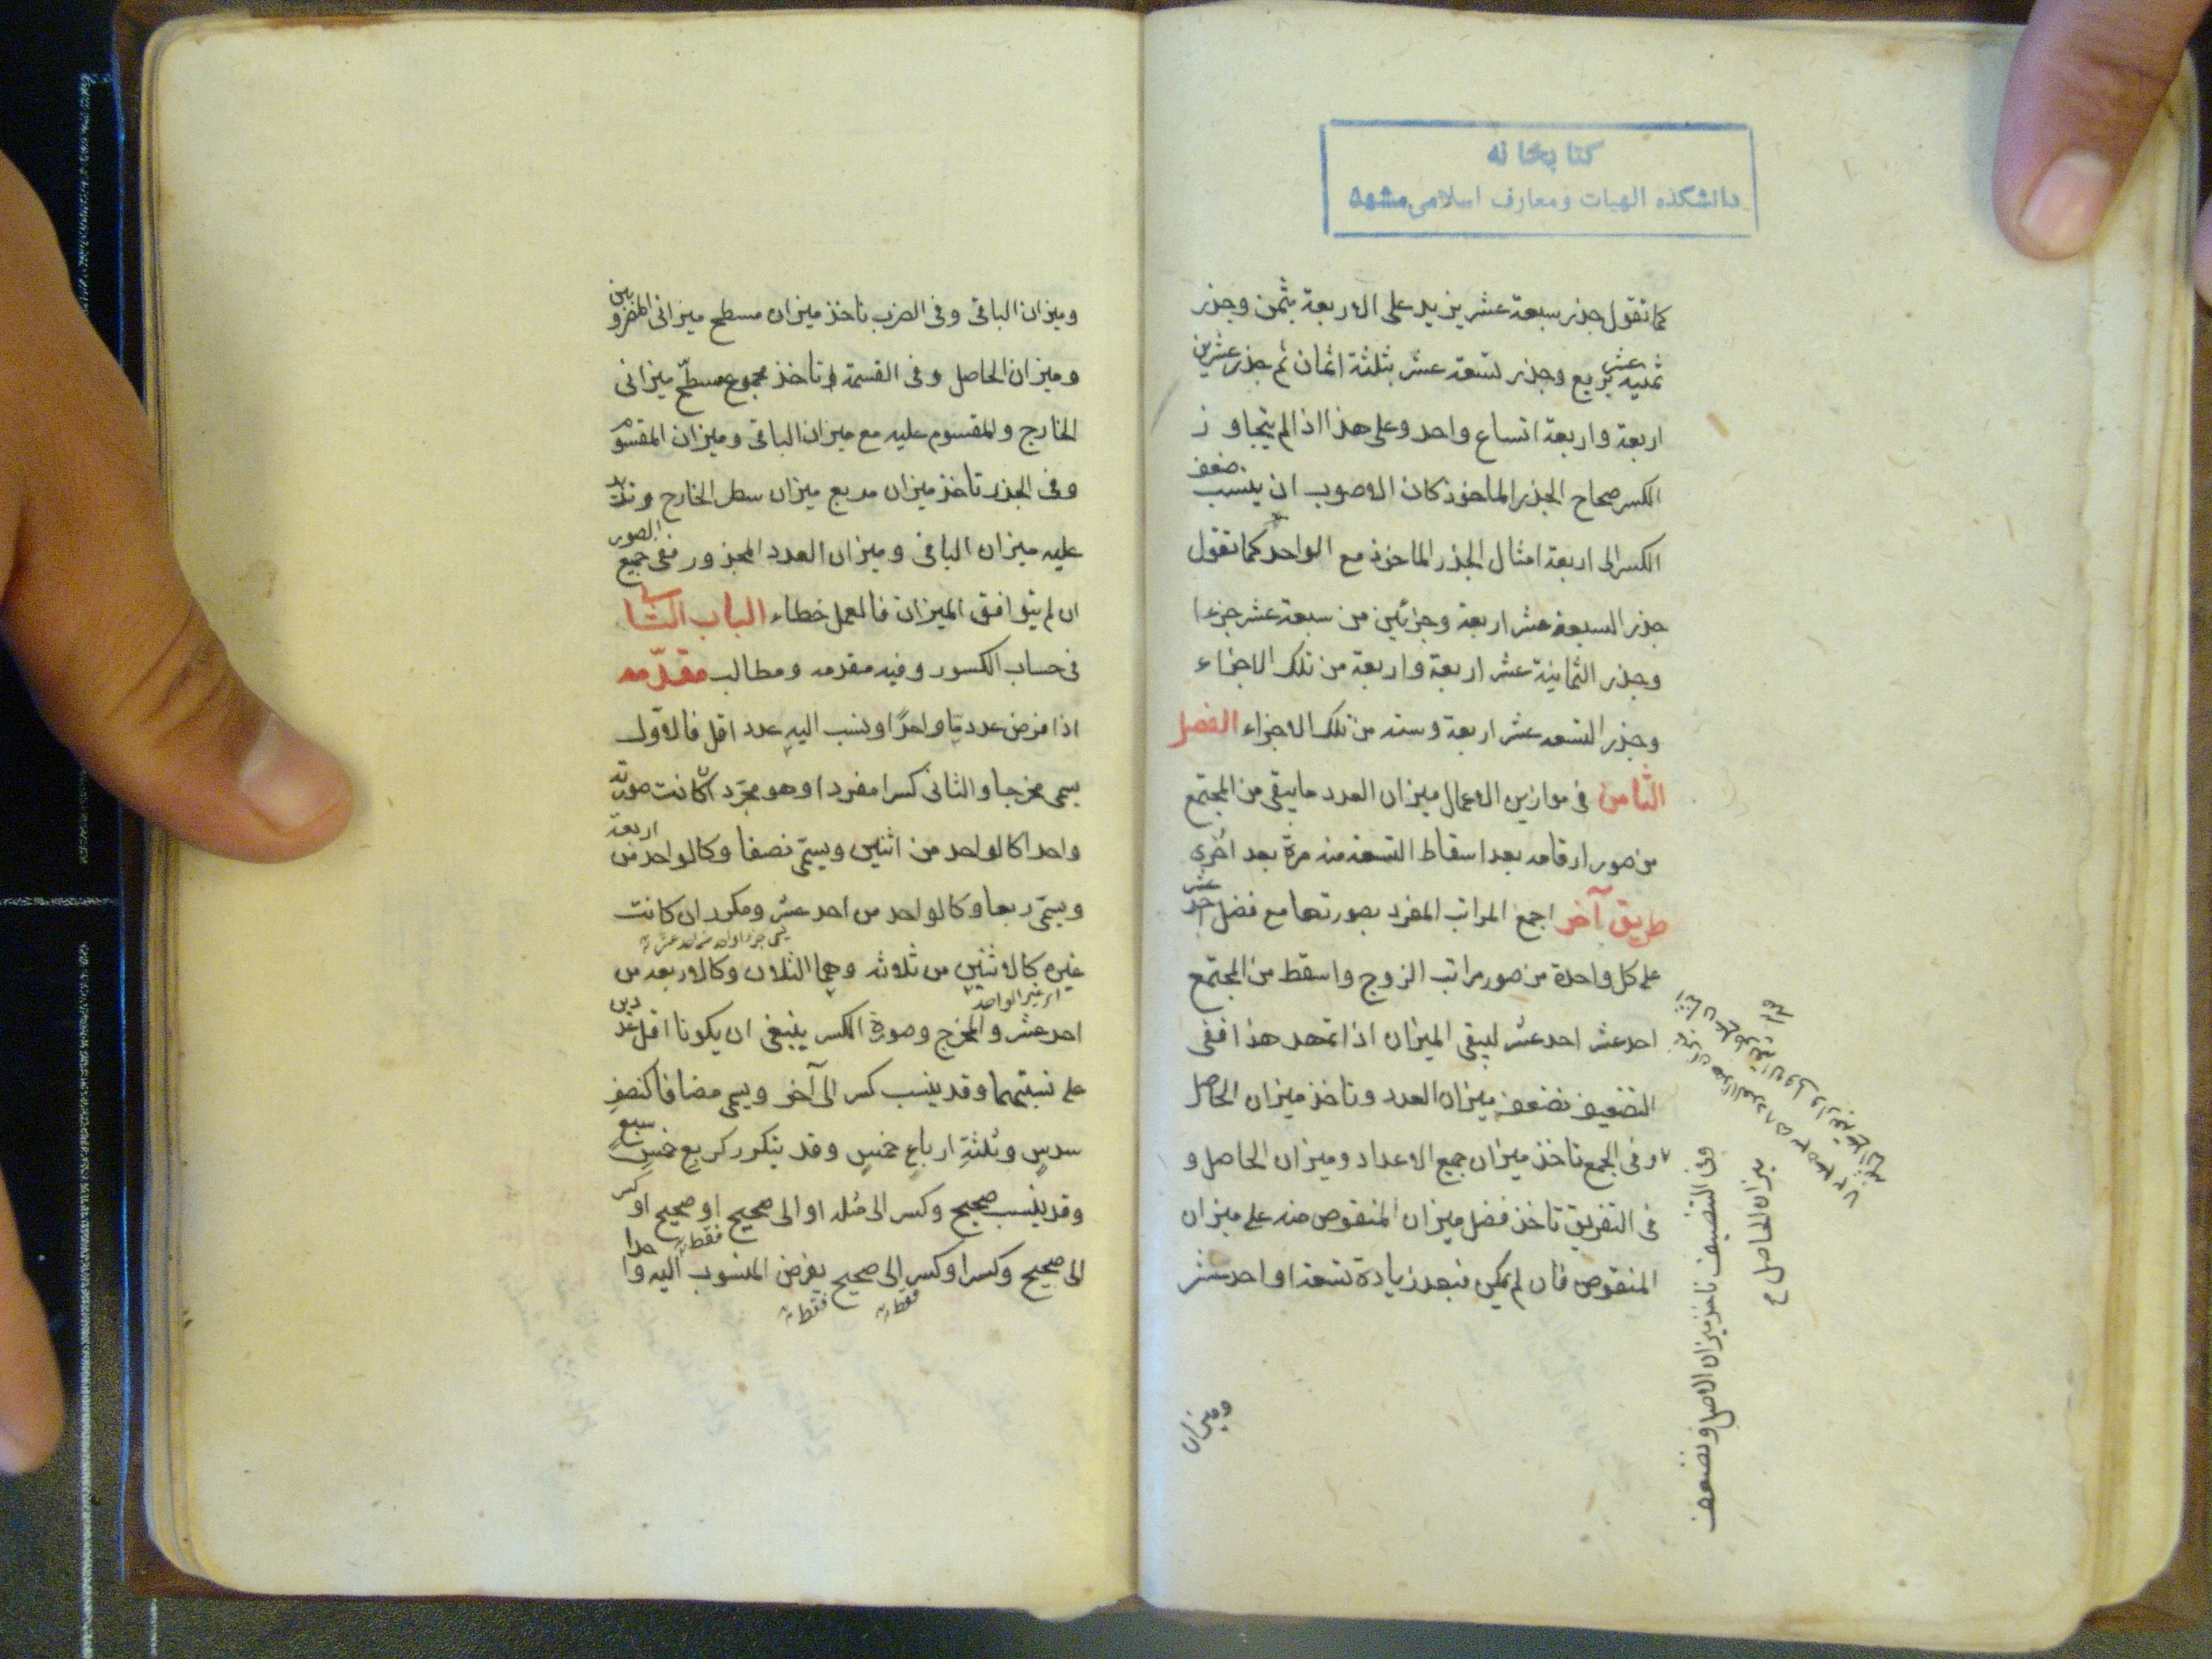 كتابخانه
دانشكده الهيات ومعارف اسلامى مشهد
كما تقول جذر سبعة عشر يزيد على الاربعة بثمن وجذر
ثمنيه عشر بربع وجذر تسعة عشر بثلثة اثمان ثم جذر عشرين
اربعة واربعة اتساع واحد وعلى هذا اذا لم يتجاوز
الكسر صحاح الجذر الماخوذ كان الاصوب ان ينسب ضعف
الكسر الى اربعة امثال الجذر الماخوذ مع الواحد كما تقول
جذر السبعة عشر اربعة وجزئين من سبعة عشر جزءا
وجذر الثمانية عشر اربعة واربعة من تلك الاجزاء
وجذر التسعه عشر اربعة وسته من تلك الاجزاء الفصل
الثامن فى موازين الاعمال ميزان العدد ما يبقى من المجتمع
من صور ارقامه بعد اسقاط التسعة منه مرة بعد اخرى
طريق آخر اجمع المراتب المفرد بصورتها مع فضل احد عشر
على كل واحدة من صور مراتب الزوج واسقط من المجتمع
احد عشر احد عشر ليبقى الميزان اذا تمهد هذا ففى
التضعيف نضعف ميزان العدد وناخذ ميزان الحاصل
وفى الجمع ناخذ ميزان جميع الاعداد وميزان الحاصل و
فى التفريق ناخذ فضل ميزان المنقوص منه على ميزان
المنقوص فان لم يمكن فبعد زيادة تسعة او احد عشر
وميزان
وفى التنصيف ناخذ ميزان الاصل ونضعف
ميزان الحاصل
وميزان الباقى وفى الضرب ناخذ ميزان مسطح ميزانى المضروبين
وميزان الحاصل وفى القسمة ناخذ مجموع مسطّح ميزانى
الخارج والمقسوم عليه مع ميزان الباقى وميزان المقسوم
وفى الجذر تاخذ ميزان مربع ميزان سطر الخارج وتزيد
عليه ميزان الباقى وميزان العدد المجذور ففى جميع الصور
ان لم يتوافق الميزان فالعمل خطاء الباب الثانى
فى حساب الكسور وفيه مقدمه ومطالب مقدّمه
اذا فرض عدد مّا واحدًا ونسب اليه عدد اقل فالاوّل
يسمى مخرجا والثانى كسرا مفردا وهو مجرّد ان كانت صورته
واحدا كالواحد من اثنين ويسمّى نصفا وكالواحد من اربعة
ويسمّى ربعا وكالواحد من احد عشر ومكرر ان كانت
يسمى جزءا واحدا من احد عشر
غيره كالاثنين من ثلاثه وهما الثلثان وكالاربعه من
اى غير الواحد
احد عشر والمخرج وصورة الكسر ينبغى ان يكونا اقل عددين
على نسبتهما وقد ينسب كسر الى آخر ويسمى مضافا كنصفِ
سدسٍ وثلثةِ ارباعِ خمسٍ وقد يتكرر كربع خمسِ سبعٍ
وقد ينسب صحيح وكسر الى مثله او الى صحيح او صحيح او كسر
فقط
الى صحيح وكسر او كسر الى صحيح يفرض المنسوب اليه واحدا
فقط فقط